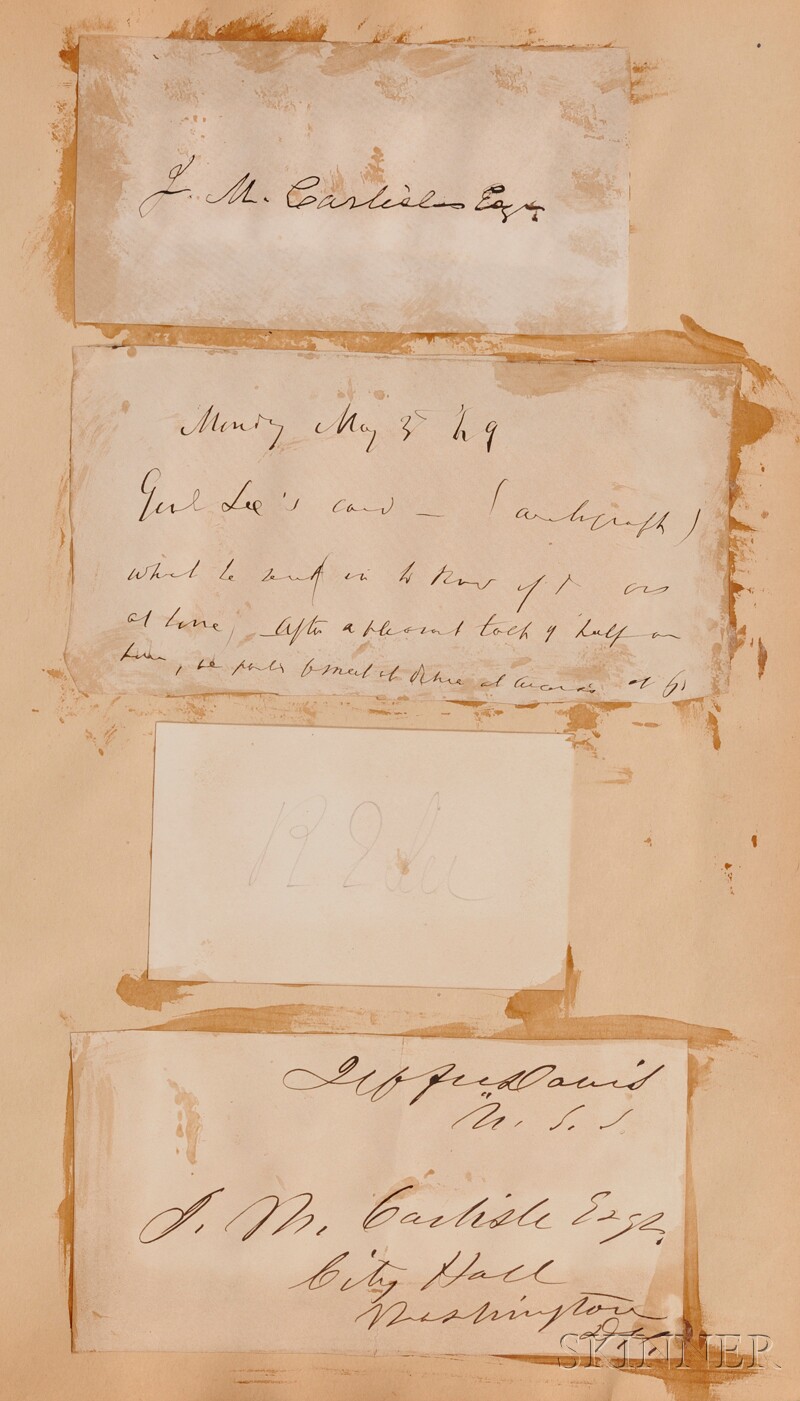 J. M. Carlisle Esqr
Monday May 3 '69
Genl Lee's card — (autograph)
what he sent in to know if I was
at home, After a pleasant talk of half an
hour, we parted to meet at dinner at at 6
R E Lee
Jeffn Davis
U. S. S
J. M. Carlisle Esqr.
City Hall
Washington
D.C.
SKINNER